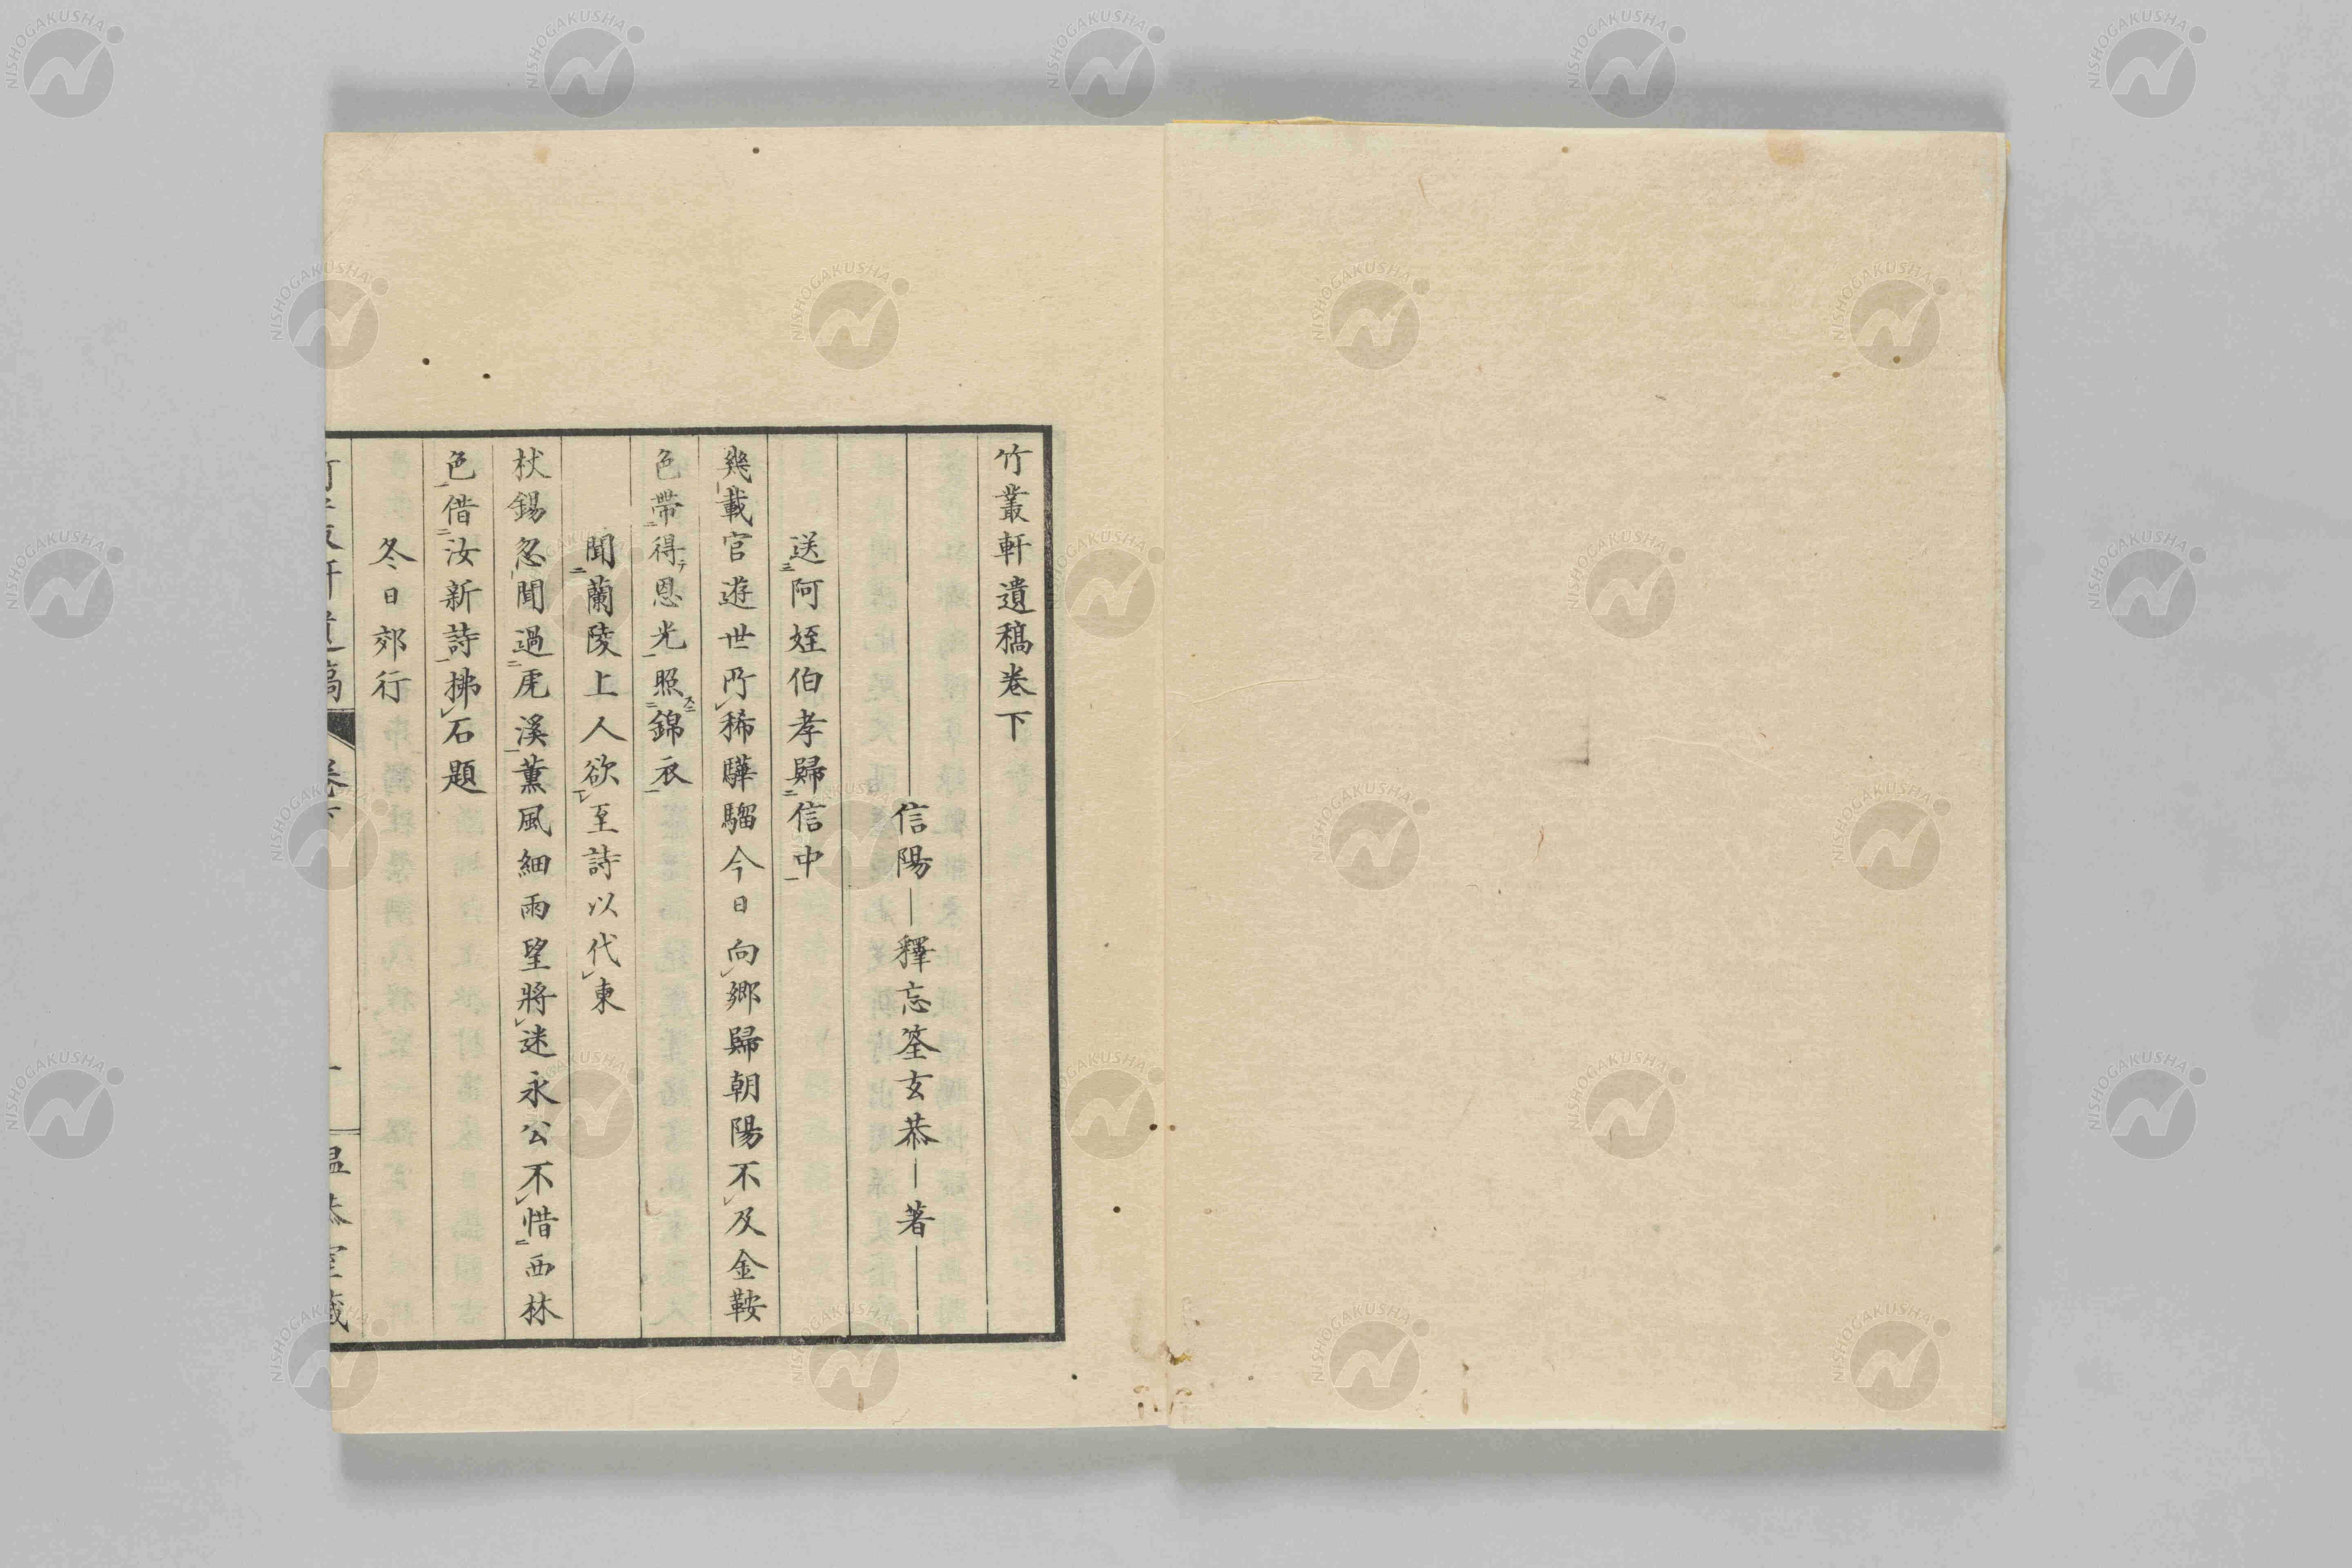 竹叢軒遺稿卷下
信陽 釋忘筌玄恭 著
送阿姪伯孝歸信中
幾載官遊世所稀驊騮今日向鄉歸朝陽不及金鞍
色帶得恩光照錦衣
聞蘭陵上人欲至詩以代柬
杖錫忽聞過虎溪薫風細雨望將迷永公不惜西林
色借汝新詩拂石題
冬日郊行
NISHOGAKUSHA